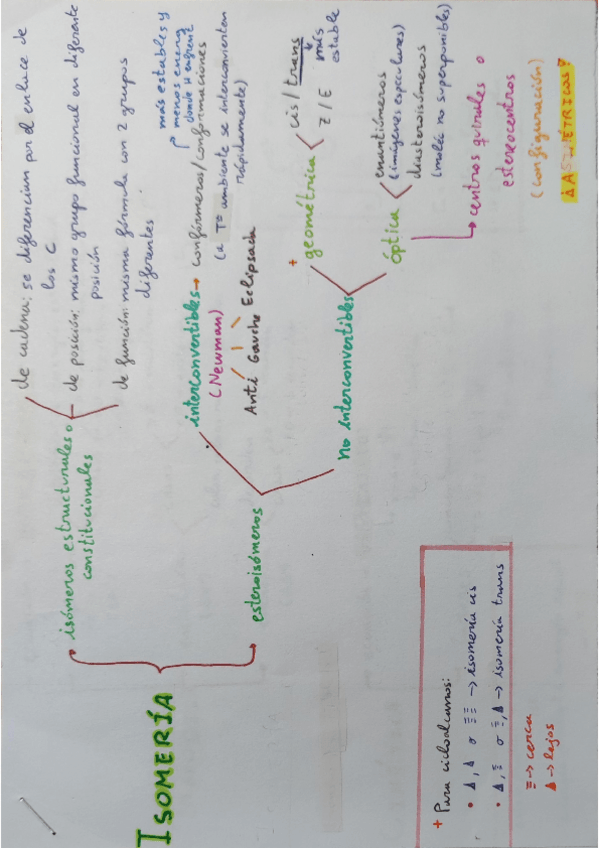 ISOMERÍA
isómeros estructurales o
constitucionales
de cadena: se diferencian por el enlace de
los C
de posición: mismo grupo funcional en diferente
posición
de función: misma fórmula con 2 grupos
diferentes
esteroisómeros
interconvertibles → confórmeros/conformaciones
(Newman)
(a Tº ambiente se interconvierten
rápidamente)
más estables y
menos energ
donde H enfrent
Anti Gauche Eclipsada
no interconvertibles
+
geométrica
cis/trans
Z/E
más
estable
óptica
enantiómeros
(imágenes especulares)
diasteroisómeros
(moléc no superponibles)
→ centros quirales o
estereocentros
(configuración)
¡ASIMÉTRICOS!
+ Para cicloalcanos:
• ▲, ▲ o Ξ Ξ → isomería cis
• ▲, Ξ o Ξ, ▲ → isomería trans
Ξ → cerca
▲ → lejos